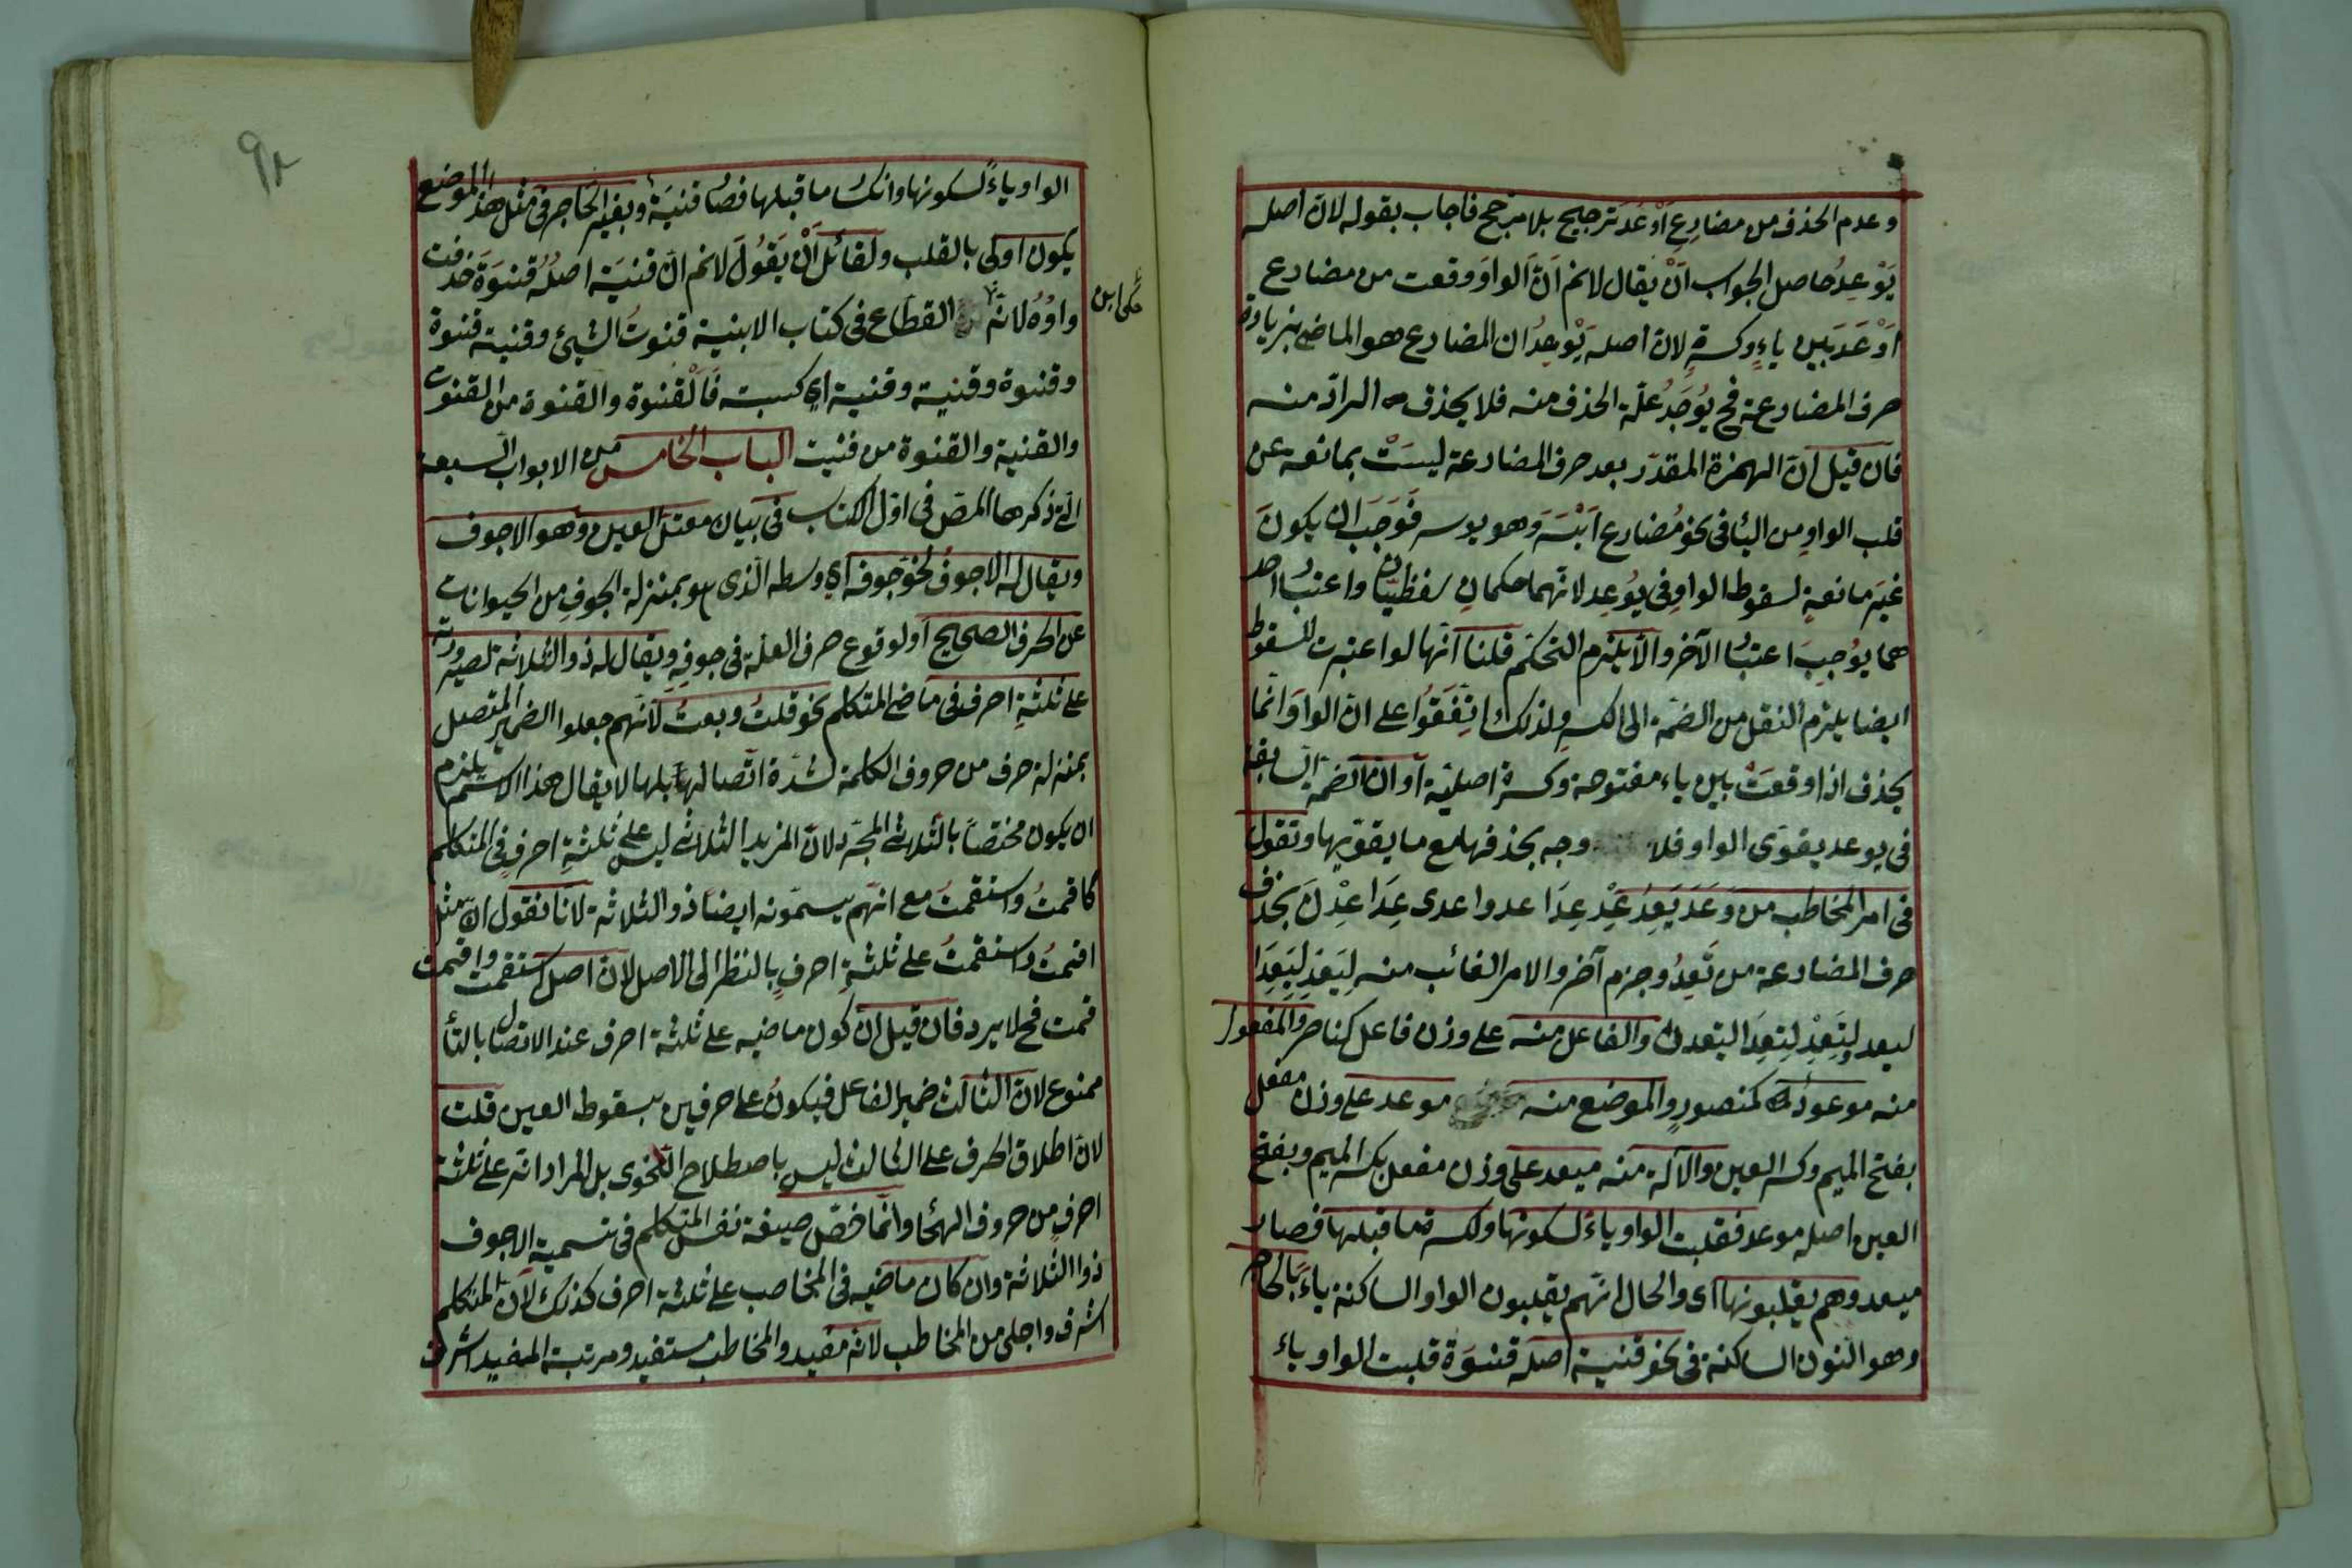 وعدم الحذف من مضارع اَوْعَدَ ترجيح بلا مرجح فاجاب بقوله لانّ اصله
يَوْعِدُ حاصل الجواب اَنْ يقال لانم اَنّ الواوَ وقعت من مضارع
اَوْعَدَ بين ياءٍ وكسرةٍ لان اصله يُؤَوْعِدُ ان المضارع هو الماضى بزيادة
حرف المضارعة فح يُوجَدُ علّة الحذف منه فلا يحذف المراد منه
فان قيل انّ الهمزة المقدّر بعد حرف المضارعة ليسَتْ بمانعة عن
قلب الواوِ من اليا فى نحو مُضارع اَيْسَرَ وهو يوسر فَوَجَبَ ان يكونَ
غيرَ مانعةٍ لسقوط الواوِ فى يُوعِد لانّهما حكمانِ لفظيّان واعتبار احد
هما يوُجِبَ اعتبار الآخر والّا يلزم التحكم قلنا انّها لو اعتبرت للسقوط
ايضا يلزم النقل من الضمّة الى الكسرِ ولذلك اتّفَقُوا على انّ الواوَ انّما
يحذف اذا وقعَتْ بين ياء مفتوحة وكسرة اصليّة او انّ الضمّة السابقة
فى يوعد يقوّى الواو فلا وجه بحذفها مع ما يقوّيها وتقول
فى امر المخاطب من وَعَدَ يَعِدُ عِدْ عِدَا عدوا عدى عِدَا عِدْنَ بحذف
حرف المضارعة من تَعِدُ وجزم آخر والامر الغائب منه لِيَعِدْ لِيَعِدَا
ليعدو لِتَعِدْ لِتعِدَا ليعدن والفاعل منه على وزن فاعل كناصر والمفعول
منه موعودٌ كمنصورٍ والموضع منه موعد على وزن مفعل
بفتح الميم وكسر العين والآلة منه ميعد على وزن مفعل بكسر الميم وبفتح
العين اصله موعد فقلبت الواو ياءً لسكونها ولكسرة ما قبلها فصار
ميعد وهم يقلبونها اى والحال انّهم يقلبون الواو الساكنة ياءً بالحاجز
وهو النون الساكنة فى نحو قنية اصله قنوَة قلبت الواو ياء
الواو ياءً لسكونها وانكسار ما قبلها فصار قنيَة وبغير الحاجز فى مثل هذا الموضع
يكون اولى بالقلب ولقائل اَنْ يَقُولَ لانم انّ قنيَة اصلُهُ قنوَة حذفت
واوُهُ لانّه القطاع فى كتاب الابنية قنوتُ الشيئ وقنية قنوة
حكى ابن
وقنوة وقنية وقنية اى كسبت فالْقنوة والقنوة من القنوت
والقنية والقنوة من قنيت الباب الخامس من الابواب السبعة
الّتى ذكرها المصّ فى اوّل الكتاب فى بيان معتلّ العين وهو الاجوف
ويقال له الاجوفُ لخوّ جوفه اى وسطه الّذى هو بمنزلة الجوفِ من الحيوانات
عن الحرف الصحيح او لوقوع حرف العلّة فى جوفِهِ ويقال له ذو الثلاثة لصيرورته
على ثلثةِ احرف فى ماضى المتكلم نحو قلتُ وبعتُ لانّهم جعلوا الضمير المتصل
بمنزلة حرف من حروف الكلمة لشدّة اتّصالها بها لا يقال هذا الاسم يلزم
ان يكون مختصاً بالثلاثى المجرّد لانّ المزيد الثلاثى ليس على ثلثةِ احرفٍ فى المتكلم
كاقمتُ واستقمتُ مع انّهم يسمّونه ايضاً ذو الثلاثة لانّا نقول انّ مثل
اقمتُ واستقمتُ على ثلثةِ احرفٍ بالنظر الى الاصل لانّ اصل استقمت واقمت
قمت فح لا يرد فان قيل انّ كون ماضيه على ثلثة احرف عند الاتصال بالتاء
ممنوع لانّ الثالث ضمير الفاعل فيكونُ على حرفين بسقوط العين قلت
لانّ اطلاق الحرف على الثالث ليس باصطلاح النّحوى بل المراد انّه على ثلثة
احرفٍ من حروف الهجا وانّما خصّ صيغة نفس المتكلم فى تسمية الاجوف
ذوا الثلاثة وان كان ماضيه فى المخاصب على ثلثة احرف كذلك لانّ المتكلم
اشرف واجلى من المخاطب لانّه مفيد والمخاطب مستفيد ومرتبة المفيد اشرف